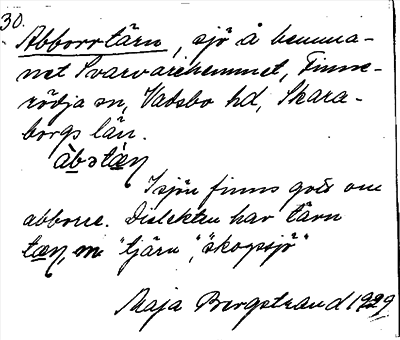 30.
Abborrtärn, sjö å hemma-
net Svarvarehemmet, Finne-
rödja sn, Vadsbo hd, Skara-
borgs län.
àbɔtæ̀ɳ
I sjön finns gott om
abborre. Dialekten har tärn
tæɳ, m "tjärn", "skogssjö"
Maja Bergstrand 1929